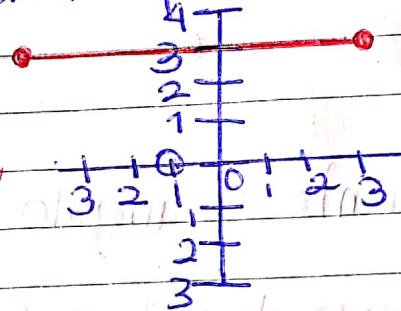 4
3
2
1
3 2 1 0 1 2 3
1
2
3